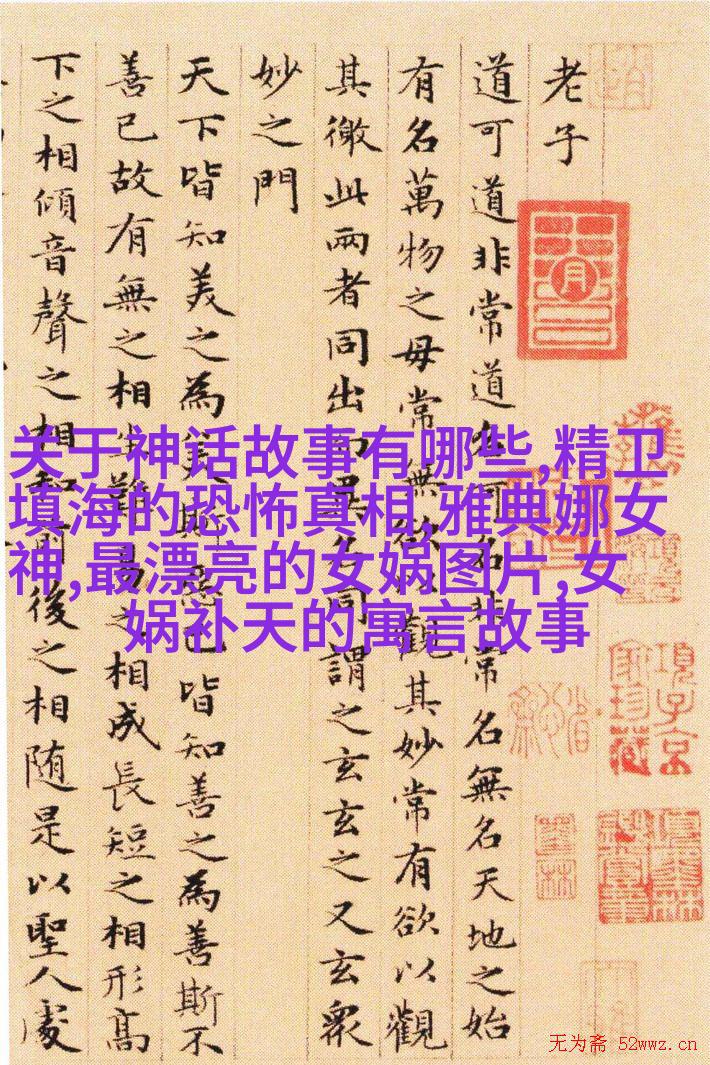 老子
道可道非常道名可名非常名無名天地之始
有名萬物之母常無欲以觀其妙常有欲以觀
其徼此兩者同出而異名同謂之玄玄之又玄衆
妙之門
天下皆知美之為美斯惡已皆知善之為善斯不
善已故有無之相生難易之相成長短之相形髙
下之相傾音聲之相和前後之相随是以聖人處
关于神话故事有哪些,精卫
填海的恐怖真相,雅典娜女
神,最漂亮的女娲图片,女
娲补天的寓言故事
項子京
家珍藏
无为斋 52wwz.cn